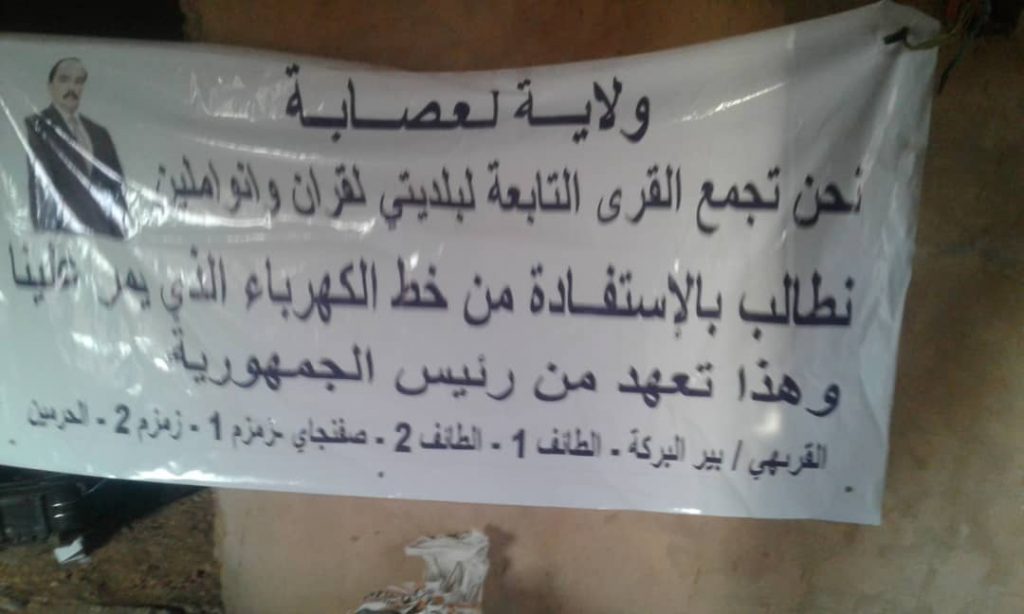 ولاية لعصابة
نحن تجمع القرى التابعة لبلديتي لقران وانواملين
نطالب بالإستفادة من خط الكهرباء الذي يمر علينا
وهذا تعهد من رئيس الجمهورية
القرىهي / بير البركة - الطائف 1 - الطائف 2 - صفنجاي -زمزم 1 - زمزم 2 - الحرمين